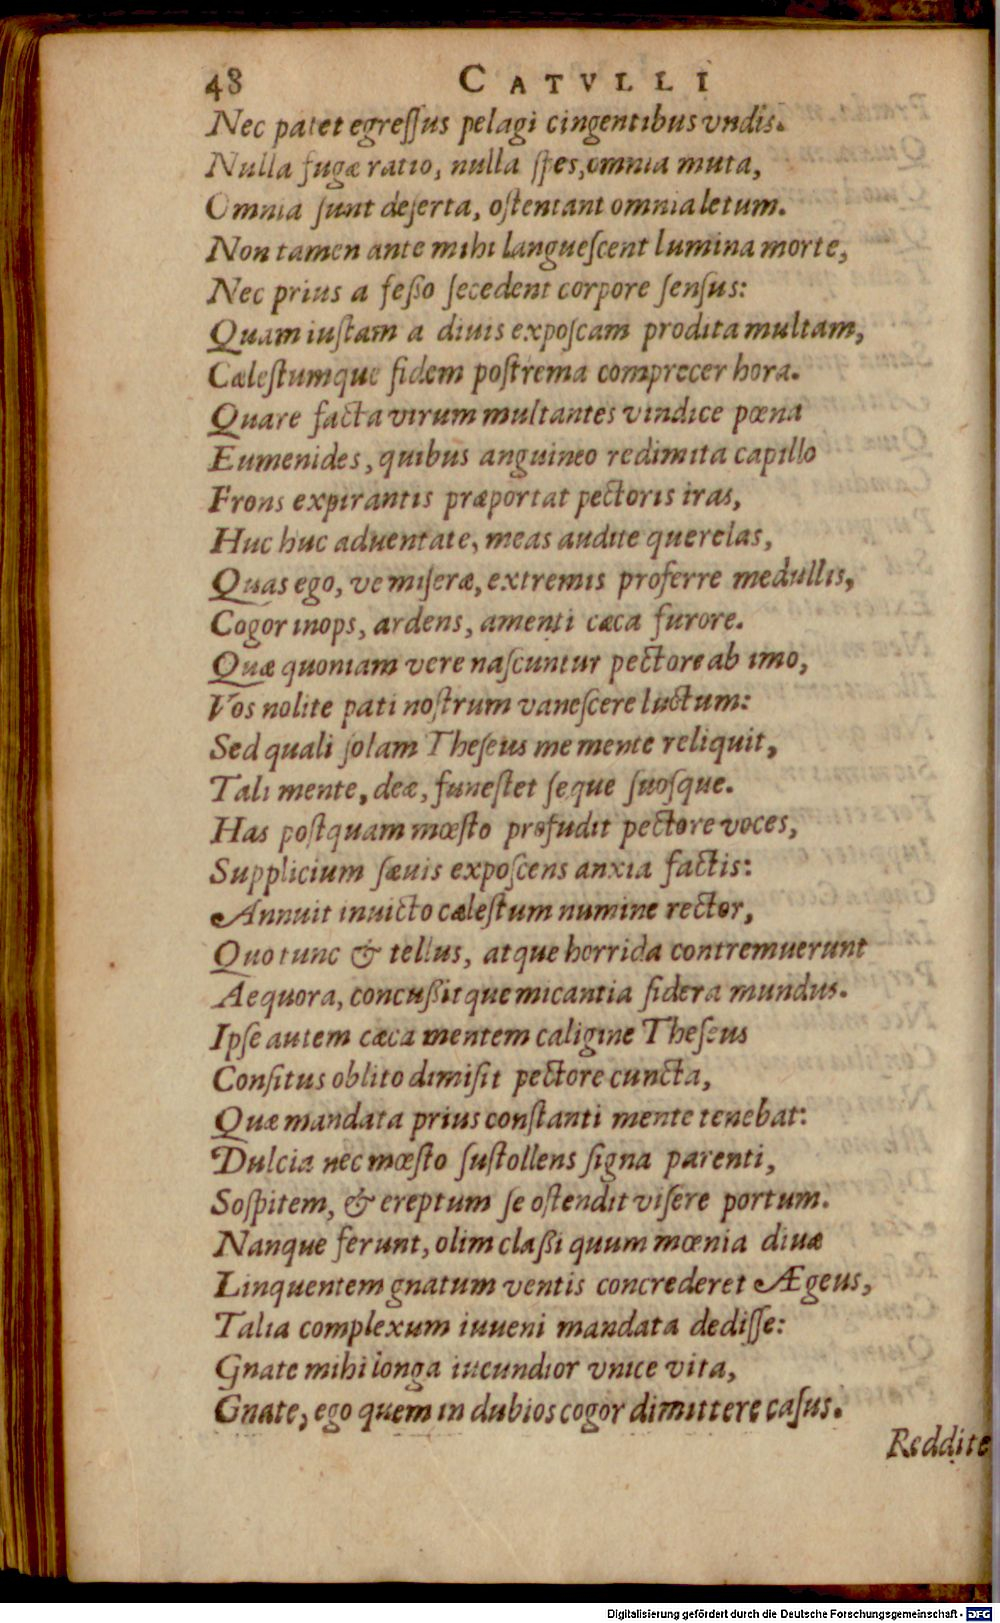 48 CATVLLI
Nec patet egreſſus pelagi cingentibus vndis.
Nulla fugæ ratio, nulla ſpes, omnia muta,
Omnia ſunt deſerta, oſtentant omnia letum.
Non tamen ante mihi langueſcent lumina morte,
Nec prius a feßo ſecedent corpore ſenſus:
Quam iuſtam a diuis expoſcam prodita multam,
Cæleſtumque fidem poſtrema comprecer hora.
Quare facta virum multantes vindice pœna
Eumenides, quibus anguineo redimita capillo
Frons expirantis præportat pectoris iras,
Huc huc aduentate, meas audite querelas,
Quas ego, ve miſeræ, extremis proferre medullis,
Cogor inops, ardens, amenti cæca furore.
Quæ quoniam vere naſcuntur pectore ab imo,
Vos nolite pati noſtrum vaneſcere luctum:
Sed quali ſolam Theſeus me mente reliquit,
Tali mente, deæ, funeſtet ſeque ſuoſque.
Has poſtquam mœſto profudit pectore voces,
Supplicium ſæuis expoſcens anxia factis:
Annuit inuicto cæleſtum numine rector,
Quo tunc & tellus, atque horrida contremuerunt
Aequora, concußitque micantia ſidera mundus.
Ipſe autem cæca mentem caligine Theſeus
Conſitus oblito dimiſit pectore cuncta,
Quæ mandata prius conſtanti mente tenebat:
Dulcia nec mœſto ſuſtollens ſigna parenti,
Soſpitem, & ereptum ſe oſtendit viſere portum.
Nanque ferunt, olim claßi quum mœnia diuæ
Linquentem gnatum ventis concrederet Ægeus,
Talia complexum iuueni mandata dediſſe:
Gnate mihi longa iucundior vnice vita,
Gnate, ego quem in dubios cogor dimittere caſus.
Reddite
Digitalisierung gefördert durch die Deutsche Forschungsgemeinschaft - DFG